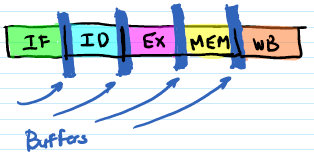 IF ID EX MEM WB
Buffers